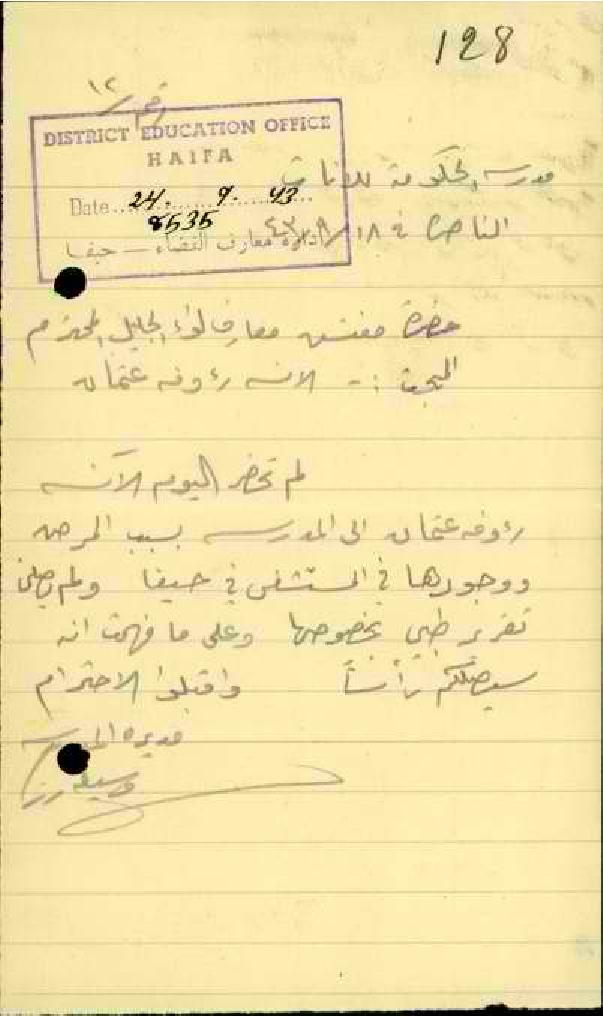 128
رقم ١٢
DISTRICT EDUCATION OFFICE
HAIFA
Date 24. 9. 43
8535
ادارة معارف القضاء — حيفا
مدرسة الحكومة للبنات
الناصرة في ١٨/٩/٤٣
حضرة مفتش معارف لواء الجليل المحترم
المبحث :- الانسه رءوفه عثمان
لم تحضر اليوم الآنسه
رءوفه عثمان الى المدرسه بسبب المرض
ووجودها في المستشفى في حيفا ولم يصلني
تقرير طبي بخصوصها وعلى ما فهمت انه
سيصلكم رأساً واقبلوا الاحترام
مديرة المدرسه